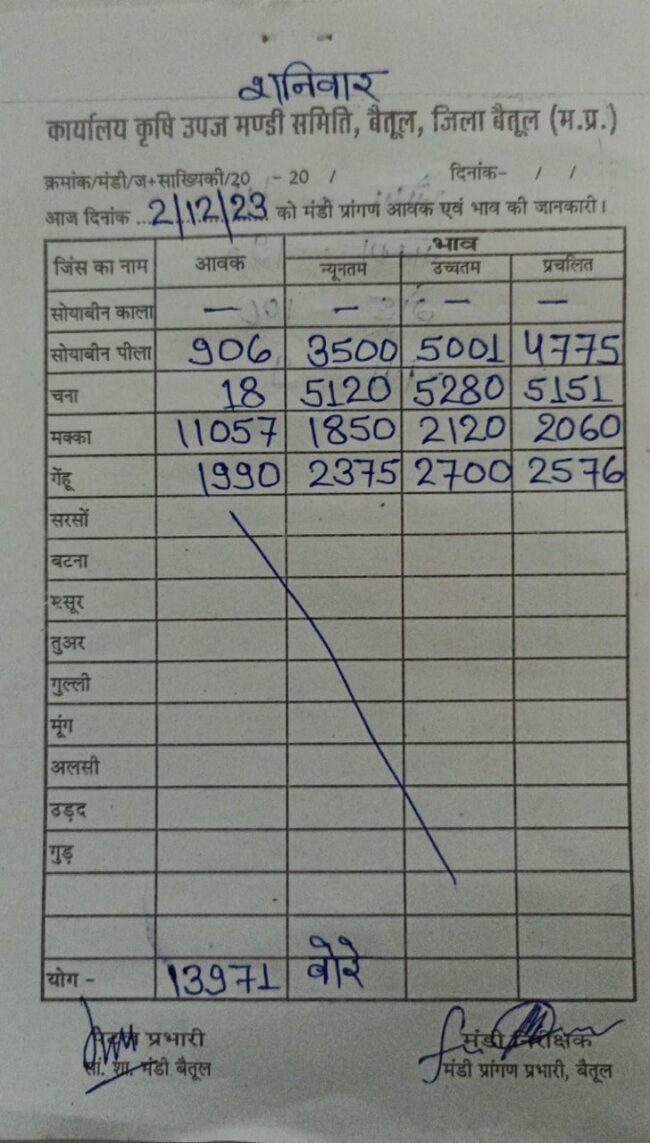 शनिवार
कार्यालय कृषि उपज मण्डी समिति, बैतूल, जिला बैतूल (म.प्र.)
क्रमांक/मंडी/ज+साख्यिकी/20 - 20 / दिनांक- / /
आज दिनांक ...2/12/23 को मंडी प्रांगण आवक एवं भाव की जानकारी।
जिंस का नाम आवक भाव
न्यूनतम उच्चतम प्रचलित
सोयाबीन काला — — — —
सोयाबीन पीला 906 3500 5001 4775
चना 18 5120 5280 5151
मक्का 11057 1850 2120 2060
गेंहू 1990 2375 2700 2576
सरसों
बटना
मसूर
तुअर
गुल्ली
मूंग
अलसी
उड़द
गुड़
योग - 13971 बोरे
प्रभारी मंडी निरीक्षक
सां. शा. मंडी बैतूल मंडी प्रांगण प्रभारी, बैतूल